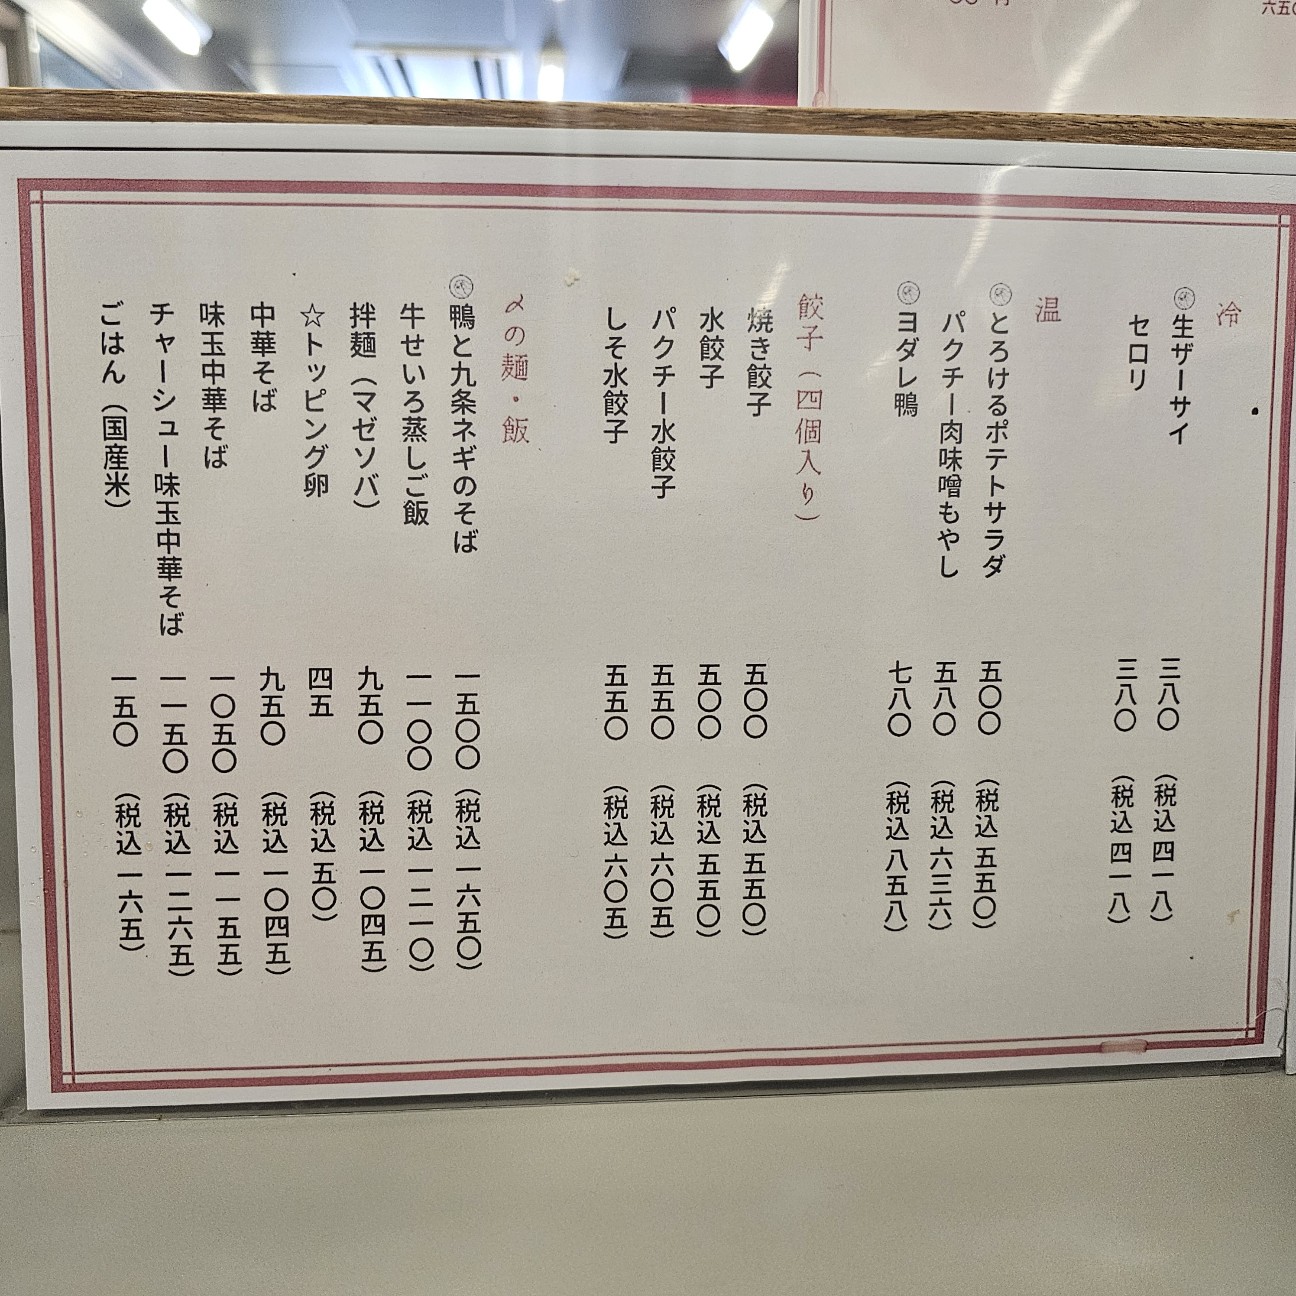 冷
生ザーサイ 三八〇 （税込 四一八）
セロリ 三八〇 （税込 四一八）
温
とろけるポテトサラダ 五〇〇 （税込 五五〇）
パクチー肉味噌もやし 五八〇 （税込 六三六）
ヨダレ鴨 七八〇 （税込 八五八）
餃子（四個入り）
焼き餃子 五〇〇 （税込 五五〇）
水餃子 五〇〇 （税込 五五〇）
パクチー水餃子 五五〇 （税込 六〇五）
しそ水餃子 五五〇 （税込 六〇五）
〆の麺・飯
鴨と九条ネギのそば 一五〇〇 （税込 一六五〇）
牛せいろ蒸しご飯 一一〇〇 （税込 一二一〇）
拌麺（マゼソバ） 九五〇 （税込 一〇四五）
☆トッピング卵 四五 （税込 五〇）
中華そば 九五〇 （税込 一〇四五）
味玉中華そば 一〇五〇 （税込 一一五五）
チャーシュー味玉中華そば 一一五〇 （税込 一二六五）
ごはん（国産米） 一五〇 （税込 一六五）